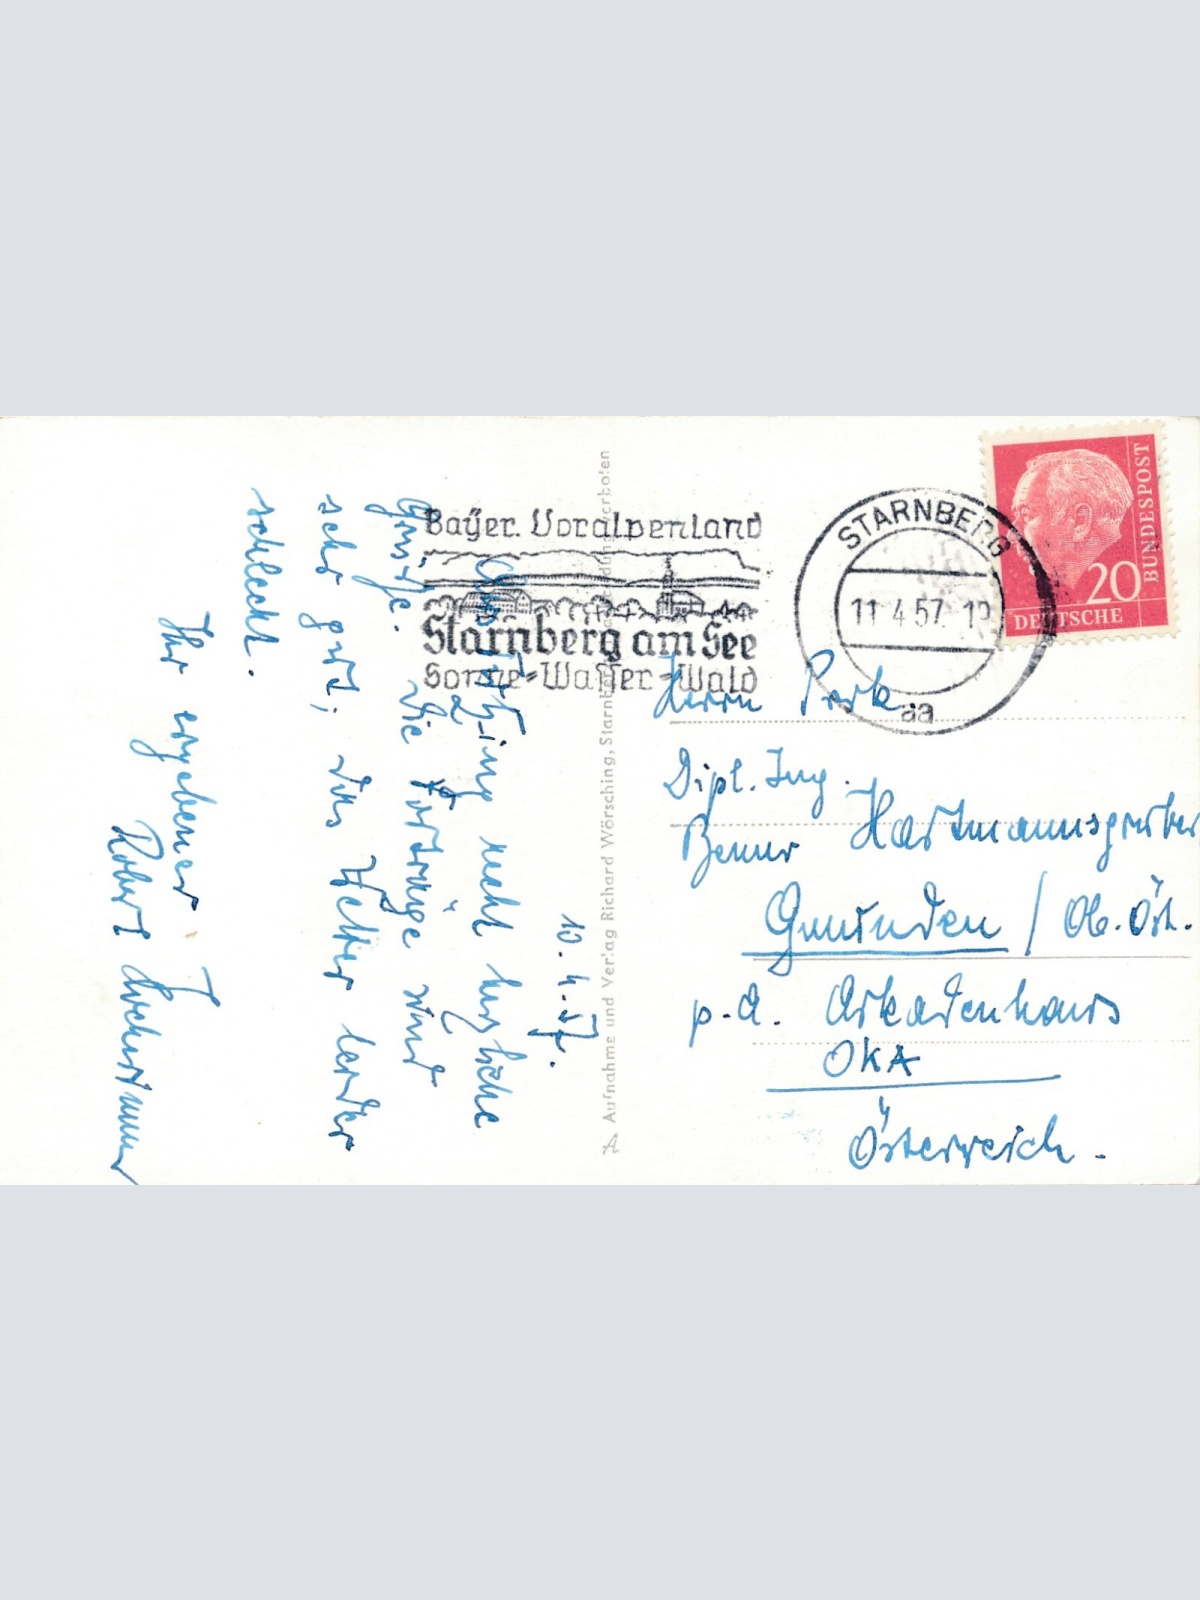 Bayer. Voralpenland
Starnberg am See
Sonne-Wasser-Wald
STARNBERG
11.4.57.
aa
20
DEUTSCHE
BUNDESPOST
10.4.57.
Aus Tutzing recht herzliche
Grüße. Die Vorträge sind
sehr gut; das Wetter leider
schlecht.
Ihr ergebener
Robert
Aufnahme und Verlag Richard Wörsching, Starnberg
Herrn
Dipl. Ing.
Hartmannsgruber
Gmunden / Ob. Öst.
p. A. Arkadenhaus
OKA
Österreich.